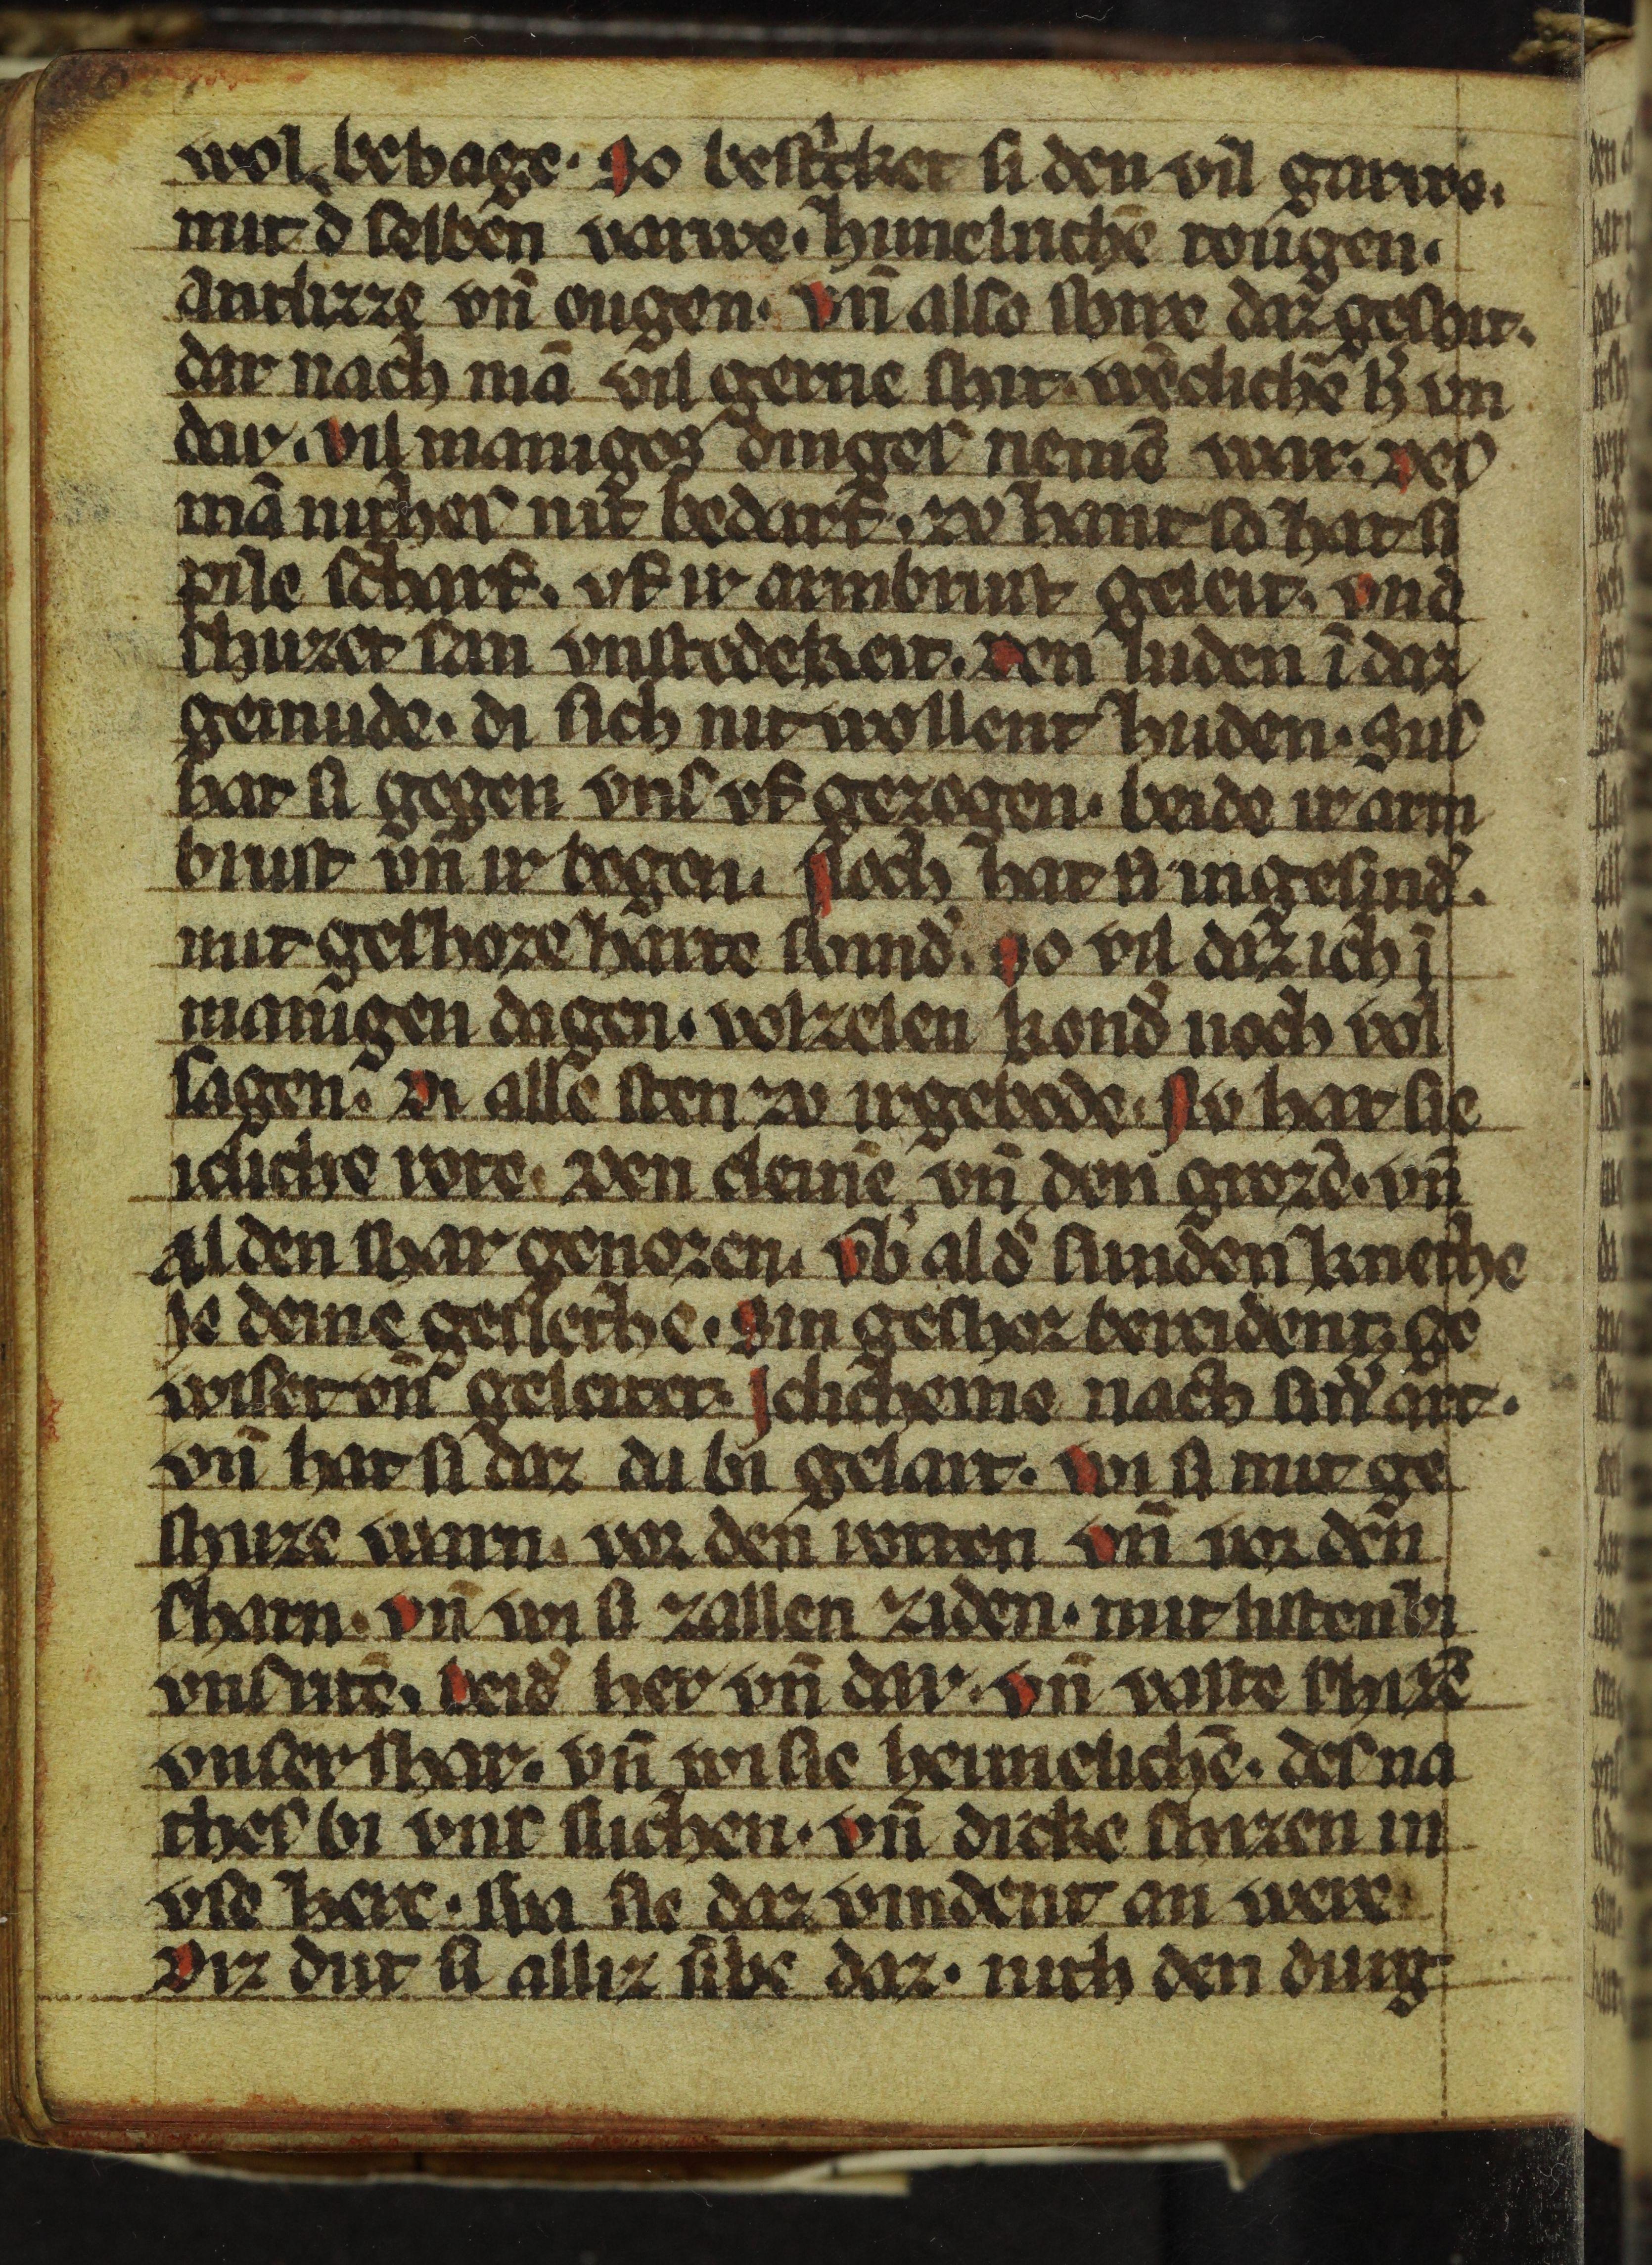 wol behage. So bestrͥcket si den vil garwe.
mit d̉ selben varwe. himelnichē tougen.
Antlizze vn̄ ougen. vn̄ also shire daz geshit.
dar nach mā vil gerne shit. wēclichē h̉ vn
dar. vil maniges dinges nemē war. Des
mā nicher nit bedarf. zv hant so hat si
pile scharf. vf ir armbrust geleit. vnd
shuzet san vnstedekeit. Den luden ī daz
gemude. di sich nit wollent huden. Sus
hat si gegen vns vf gezogen. beide ir arm
brust vn̄ ir bogen. Noch hat si ingesind̉.
mit geshoze harte swind̉. So vil daz ich ī
manigen dagen. volzelen kond̉ noch vol
sagen. Di alle sten zv irgebode. Nv hat sie
icliche rote. Den cleinē vn̄ den grozē. vn̄
al den shar genozen. vb̉ al d̉ sunden knethe
ie deme geslethe. Sin geshoz bereident ge
wiset vn̄ geleitet. Iclicheme nach sin̉ art.
vn̄ hat si daz da bi gelart. wi si mit ge
shuze warn. vor den rotten vn̄ vor den
sharn. vn̄ wi si zallen ziden. mit listen bi
vns ritē. beid̉ her vn̄ dar. vn̄ vaste shizē
vnser shar. vn̄ wi sie heimelichē. des na
thes bi vns slichen. vn̄ dicke shizen in
vse here. swa sie daz vindent an were
Diz dut si alliz vͥbe daz. mich den ding